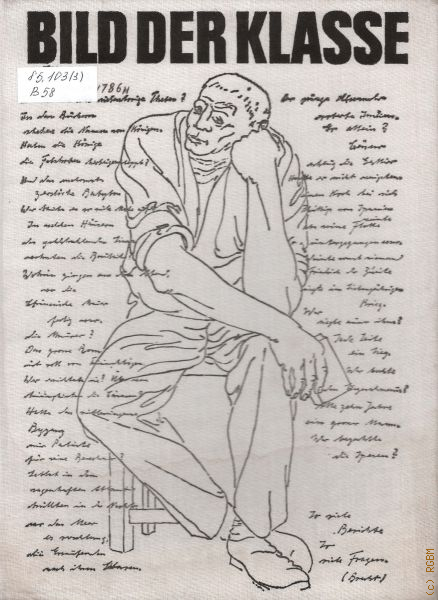 BILD DER KLASSE
85.103(3)
B58
1786
siebentorige Theben?
In den Büchern
stehen die Namen von Königen.
Haben die Könige
die Felsbrocken herbeigeschleppt?
Und das mehrmals
zerstörte Babylon
Wer baute es so viele Male
In welchen Häusern
des goldstrahlenden Lima
wohnten die Bauleute
Wohin gingen an dem Abend,
wo die
Chinesische Mauer
fertig war
die Maurer?
Das grosse Rom
ist voll von
Wer errichtete sie?
die Cäsaren?
Hatte das
Byzanz
nur Paläste
für seine Bewohner?
Selbst in dem
sagenhaften Atlantis
brüllten in der Nacht
wo das Meer
es verschlang
die Ersaufenden
nach ihren Sklaven.
Der junge Alexander
eroberte Indien.
Er allein?
Cäsar
schlug die Gallier
er nicht wenigstens
einen Koch bei sich
Philipp von Spanien
weinte
als seine Flotte
untergegangen war
weinte sonst niemand
Friedrich der Zweite
siegte im Siebenjährigen
Kriege
Wer
siegte ausser ihm?
Jede Seite
ein Sieg.
Wer kochte
den Siegesschmaus?
Alle zehn Jahre
ein grosser Mann.
Wer bezahlte
die Spesen?
So viele
Berichte
So
viele Fragen
(Brecht)
(c) RGBM